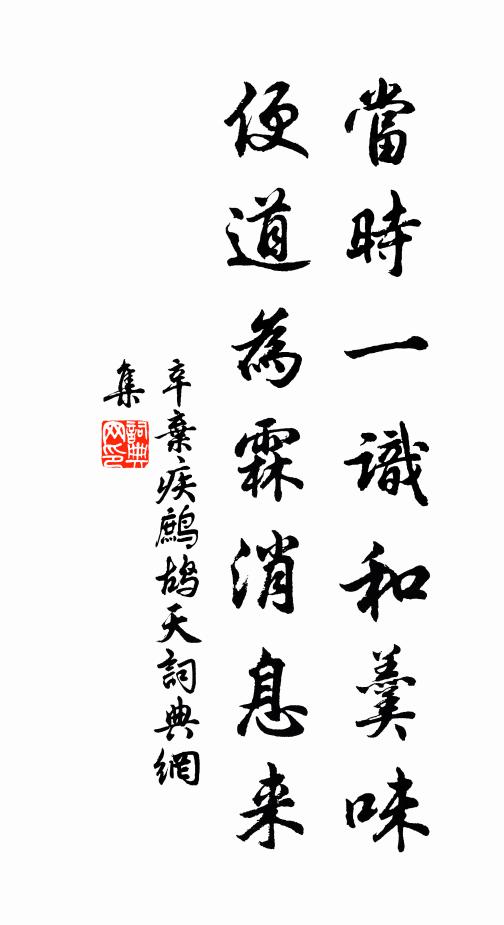 當時一識和羹味
便道為霖消息来
辛棄疾鷓鴣天詞典網
集
詞典
网印